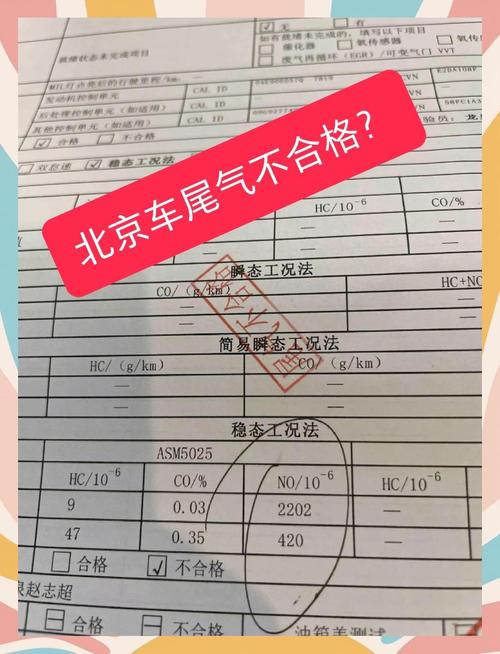 无 有
如有就绪未完成的，填写以下项目
就绪状态未完成项目
催化器 氧传感器 氧传
废气再循环（EGR）/可变气门 VVT
MIL灯点亮后的行驶里程/km：
发动机控制单元 CAL ID CVN
后处理控制单元（如适用） CAL ID CVN
其他控制单元（如适用） CAL ID
合格 不合格
双怠速 ☑ 稳态工况法
北京车尾气不合格?
HC/10⁻⁶ CO/%
— —
— —
瞬态工况法
CO/（g/km） HC+NO
— —
— —
不合格
简易瞬态工况法
HC/（g/km） CO/（g/km）
— —
— —
稳态工况法
ASM5025
HC/10⁻⁶ CO/% NO/10⁻⁶ HC/10⁻⁶
9 0.03 2202 —
47 0.35 420 —
☐ 合格 ☑ 不合格
赵志超
合格 不合格 油箱盖测试